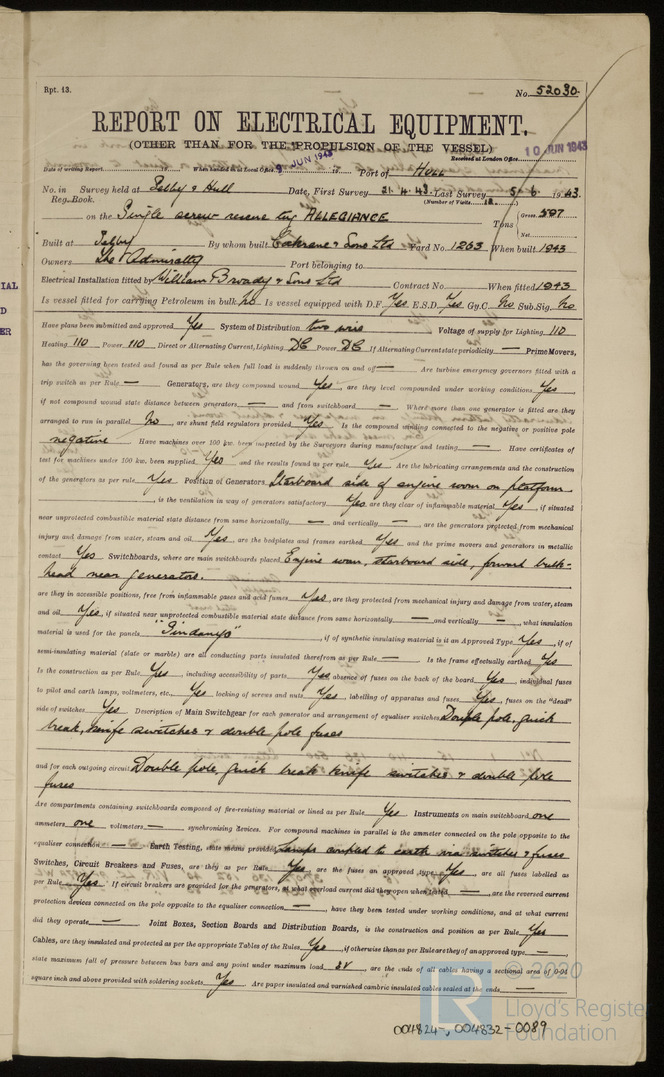 Rpt. 13.
No. 52030.
REPORT ON ELECTRICAL EQUIPMENT.
(OTHER THAN FOR THE PROPULSION OF THE VESSEL)
Received at London Office 10 JUN 1943
Date of writing Report 19 When handed in at Local Office 9 JUN 1943 19 Port of HULL
No. in Survey held at Selby & Hull Date, First Survey 21.4.43 Last Survey 5.6.1943
Reg. Book. (Number of Visits 12)
on the Single screw rescue tug ALLEGIANCE Tons { Gross 597
Net
Built at Selby By whom built Cochrane & Sons Ltd Yard No. 1263 When built 1943
Owners The Admiralty Port belonging to
Electrical Installation fitted by William Broady & Sons Ltd Contract No. When fitted 1943
Is vessel fitted for carrying Petroleum in bulk No Is vessel equipped with D.F. Yes E.S.D. Yes Gy.C. No Sub.Sig. No
Have plans been submitted and approved Yes System of Distribution two wire Voltage of supply for Lighting 110
Heating 110 Power 110 Direct or Alternating Current, Lighting DC Power DC If Alternating Current state periodicity — Prime Movers,
has the governing been tested and found as per Rule when full load is suddenly thrown on and off — Are turbine emergency governors fitted with a
trip switch as per Rule — Generators, are they compound wound Yes, are they level compounded under working conditions Yes,
if not compound wound state distance between generators — and from switchboard — Where more than one generator is fitted are they
arranged to run in parallel No, are shunt field regulators provided Yes Is the compound winding connected to the negative or positive pole
negative Have machines over 100 kw. been inspected by the Surveyors during manufacture and testing — Have certificates of
test for machines under 100 kw. been supplied Yes and the results found as per rule Yes Are the lubricating arrangements and the construction
of the generators as per rule Yes Position of Generators Starboard side of engine room on platform
, is the ventilation in way of generators satisfactory Yes are they clear of inflammable material Yes, if situated
near unprotected combustible material state distance from same horizontally — and vertically —, are the generators protected from mechanical
injury and damage from water, steam and oil Yes, are the bedplates and frames earthed Yes and the prime movers and generators in metallic
contact Yes Switchboards, where are main switchboards placed Engine room, starboard side, forward bulk-
head near generators.
are they in accessible positions, free from inflammable gases and acid fumes Yes, are they protected from mechanical injury and damage from water, steam
and oil Yes, if situated near unprotected combustible material state distance from same horizontally — and vertically —, what insulation
material is used for the panels "Sindanyo", if of synthetic insulating material is it an Approved Type Yes, if of
semi-insulating material (slate or marble) are all conducting parts insulated therefrom as per Rule — Is the frame effectually earthed Yes
Is the construction as per Rule Yes, including accessibility of parts Yes, absence of fuses on the back of the board Yes, individual fuses
to pilot and earth lamps, voltmeters, etc., Yes locking of screws and nuts Yes, labelling of apparatus and fuses Yes, fuses on the "dead"
side of switches Yes Description of Main Switchgear for each generator and arrangement of equaliser switches Double pole, quick
break, knife switches & double pole fuses
and for each outgoing circuit Double pole, quick break knife switches & double pole
fuses
Are compartments containing switchboards composed of fire-resisting material or lined as per Rule Yes Instruments on main switchboard one
ammeters one voltmeters — synchronising devices. For compound machines in parallel is the ammeter connected on the pole opposite to the
equaliser connection — Earth Testing, state means provided Lamps coupled to earth via switches & fuses
Switches, Circuit Breakers and Fuses, are they as per Rule Yes, are the fuses an approved type Yes, are all fuses labelled as
per Rule Yes If circuit breakers are provided for the generators, at what overload current did they open when tested —, are the reversed current
protection devices connected on the pole opposite to the equaliser connection —, have they been tested under working conditions, and at what current
did they operate — Joint Boxes, Section Boards and Distribution Boards, is the construction and position as per Rule Yes
Cables, are they insulated and protected as per the appropriate Tables of the Rules Yes, if otherwise than as per Rule are they of an approved type —,
state maximum fall of pressure between bus bars and any point under maximum load 3V, are the ends of all cables having a sectional area of 0·04
square inch and above provided with soldering sockets Yes Are paper insulated and varnished cambric insulated cables sealed at the ends —
© 2020
Lloyd's Register
Foundation
004824-, 004832-0089
IAL
D
ER